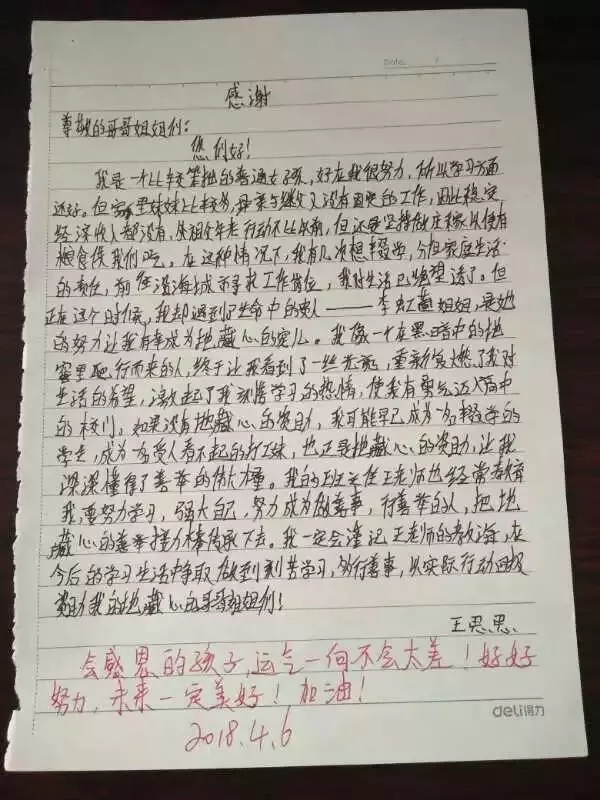 Date
感谢
尊敬的哥哥姐姐们：
您们好！
我是一个比较笨拙的普通女孩，好在我很努力，所以学习方面
还好。但家里妹妹上比较多，母亲与继父又没有固定的工作，因此稳定
经济收入都没有，外祖父年老行动不比从前，但还是坚持做庄稼以便有
粮食供我们吃。在这种情况下，我有几次想辍学，分担家庭生活
的责任，前往沿海城市寻找工作岗位，我对生活已绝望透了。但
正在这个时候，我却遇到了生命中的贵人——李虹 姐姐，是她
的努力让我有幸成为地藏心的宠儿。我像一个在黑暗中的地
窖里爬行而来的人，终于让我看到了一丝光亮，重新复燃了我对
生活的希望，激起了我刻苦学习的热情，使我有勇气迈入高中
的校门。如果没有地藏心的资助，我可能早已成为一名辍学的
学生，成为一名受人看不起的打工妹，也正是地藏心的资助，让我
深深懂得了善举的伟大 。我的班主任王老师也经常教育
我，要努力学习，强大自己，努力成为做善事，行善举的人，把地
藏心的善举接力棒传承下去。我一定会谨记王老师的教诲，在
今后的学习生活中争取做到刻苦学习，多行善事，以实际行动回报
资助我的地藏心的哥哥姐姐们！
王思思
会感恩的孩子，运气一向不会太差！好好
努力，未来一定美好！加油！
2018.4.6
deli得力